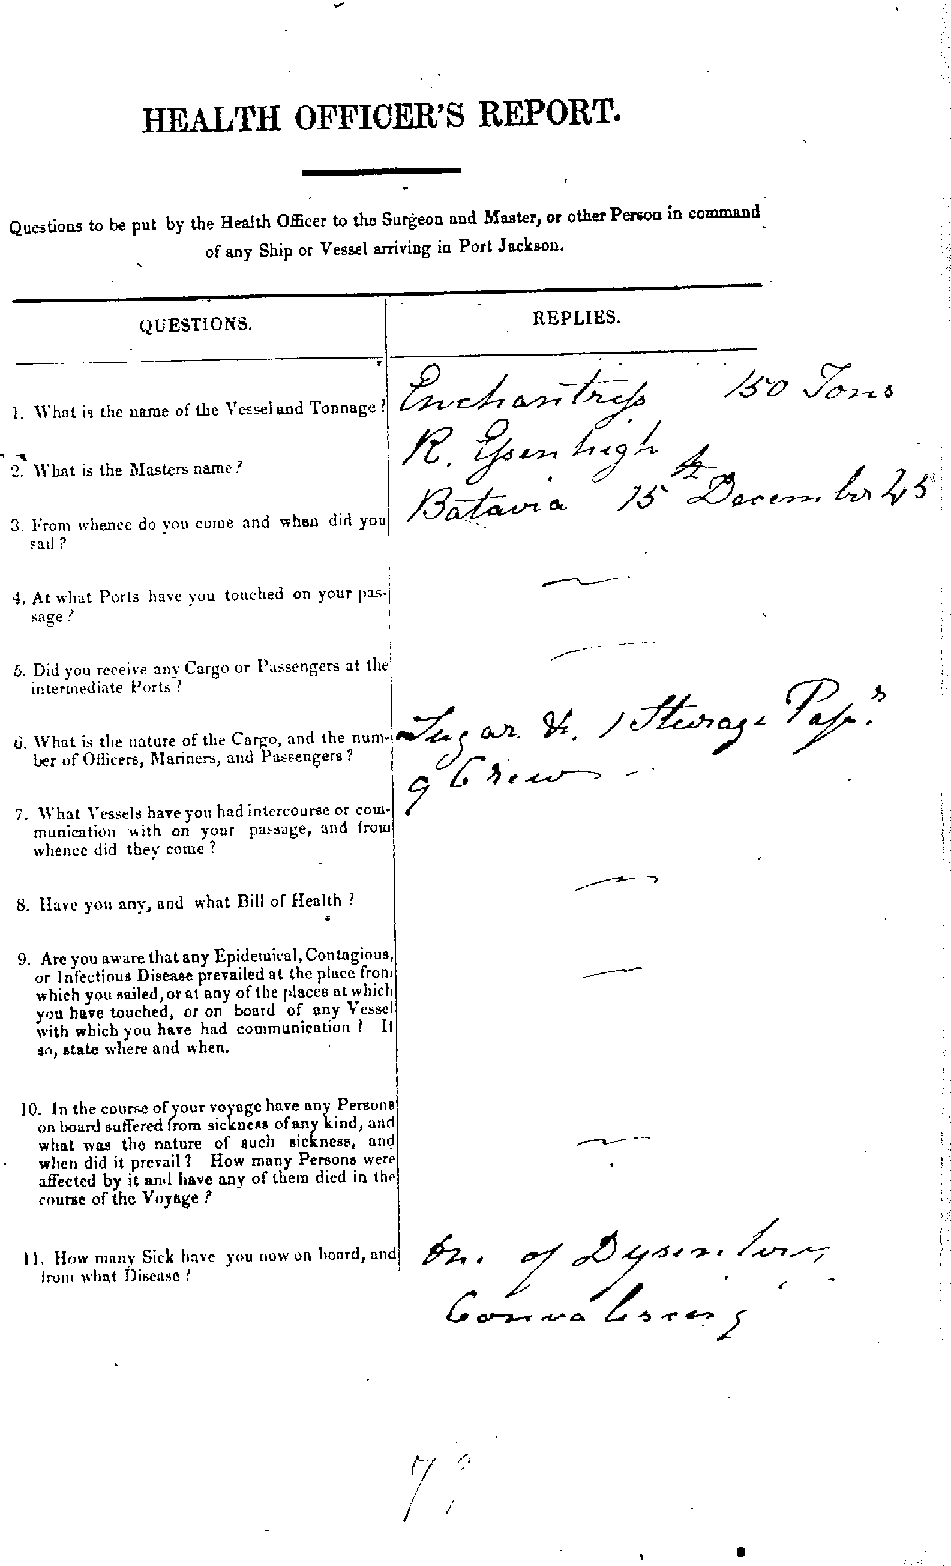 HEALTH OFFICER'S REPORT.
Questions to be put by the Health Officer to the Surgeon and Master, or other Person in command
of any Ship or Vessel arriving in Port Jackson.
QUESTIONS.
REPLIES.
1. What is the name of the Vessel and Tonnage?
Enchantress 150 Tons
2. What is the Masters name?
R. Essenhigh
3. From whence do you come and when did you
sail?
Batavia 15th December 45
4. At what Ports have you touched on your pas-
sage?
—
5. Did you receive any Cargo or Passengers at the
intermediate Ports?
—
6. What is the nature of the Cargo, and the num-
ber of Officers, Mariners, and Passengers?
Sugar &c. 1 Sterage Passr.
9 Crew -
7. What Vessels have you had intercourse or com-
munication with on your passage, and from
whence did they come?
8. Have you any, and what Bill of Health?
—
9. Are you aware that any Epidemical, Contagious,
or Infectious Disease prevailed at the place from
which you sailed, or at any of the places at which
you have touched, or on board of any Vessel
with which you have had communication? If
so, state where and when.
—
10. In the course of your voyage have any Persons
on board suffered from sickness of any kind, and
what was the nature of such sickness, and
when did it prevail? How many Persons were
affected by it and have any of them died in the
course of the Voyage?
—
11. How many Sick have you now on board, and
from what Disease?
On. of Dysentery
Convalescing